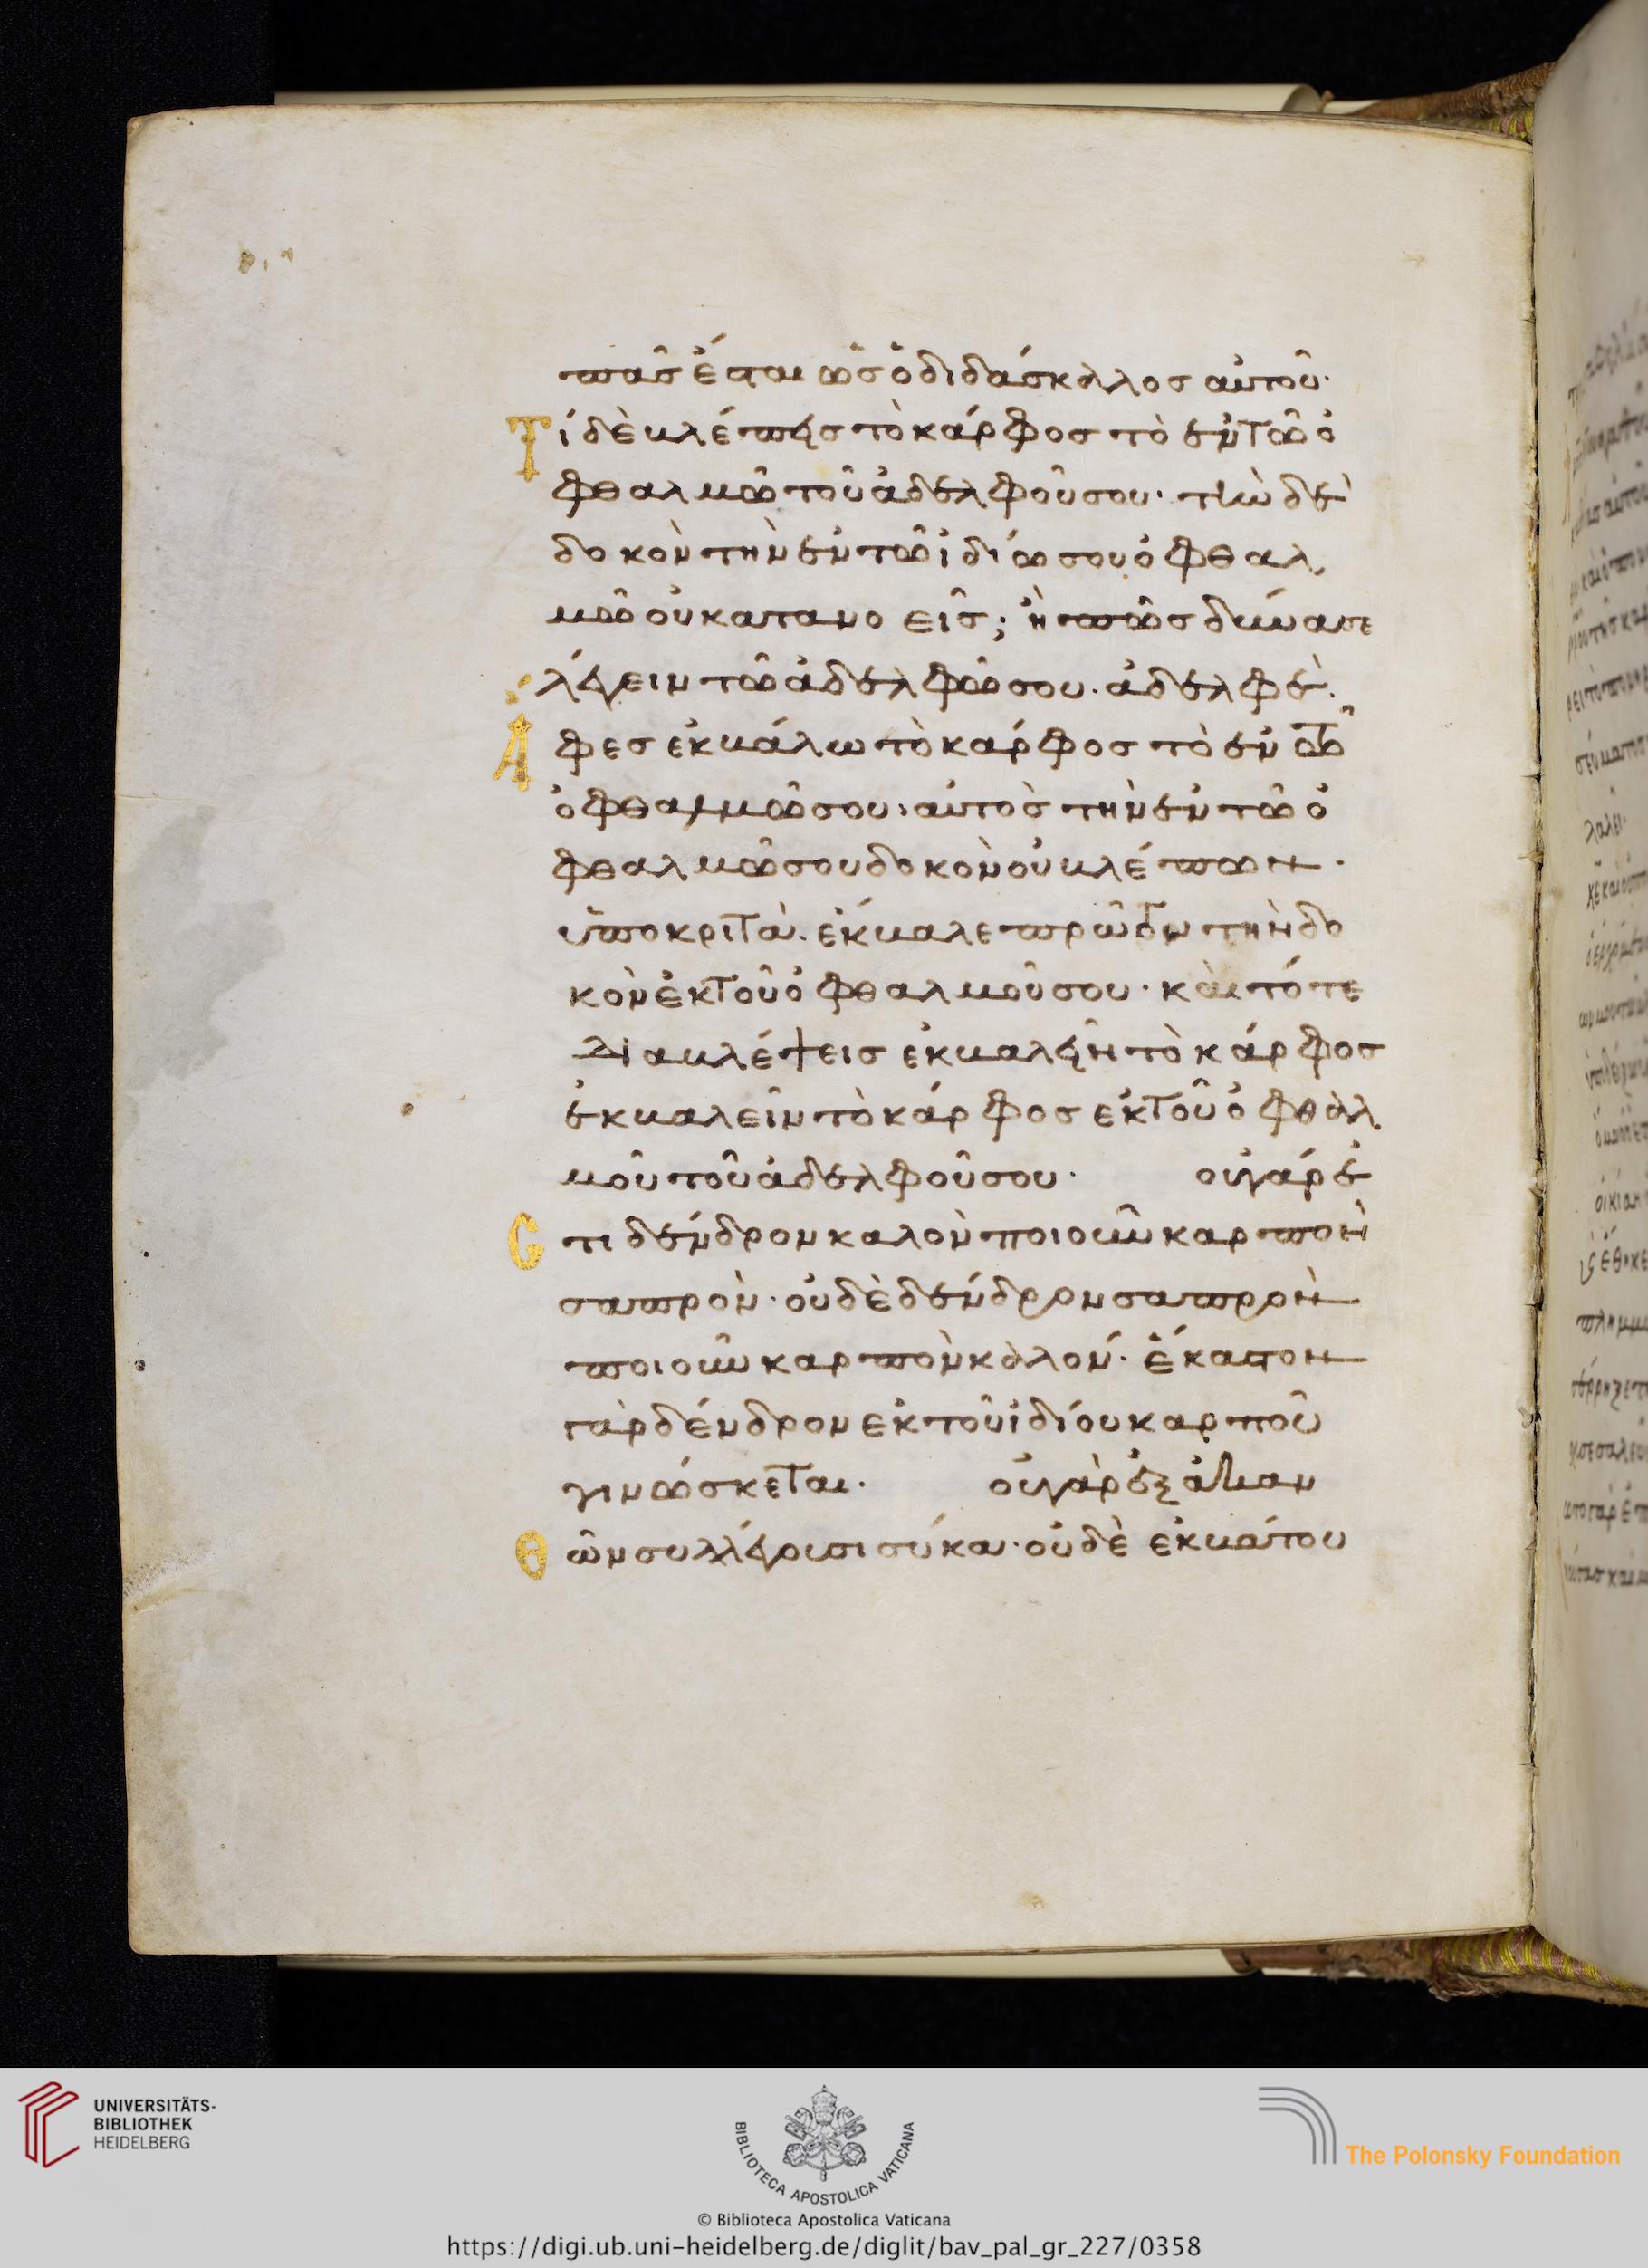 πᾶσ ἔσται ὡσ ὁ διδάσκαλλοσ αὐτοῦ·
Τί δὲ βλέπησ τὸ κάρφοσ τὸ ἐν τῶ ὀ
φθαλμῶ τοῦ ἀδελφοῦ σου· τὴν δὲ
δοκὸν τὴν ἐν τῶ ἰδίω σου ὀφθαλ
μῶ οὐ κατανοεῖσ; ἢ πῶσ δύνασε
λέγειν τῶ ἀδελφῶ σου· ἀδελφὲ.
Ἄφεσ ἐκβάλω τὸ κάρφοσ τὸ ἐν τῶ
ὀφθαλμῶ σου· αὐτοσ τὴν ἐν τῶ ὀ
φθαλμῶ σου δοκὸν οὐ βλέπων·
ὑποκριτὰ· ἔκβαλε πρῶτον τὴν δο
κὸν ἐκ τοῦ ὀφθαλμοῦ σου· καὶ τότε
διαβλέψεισ ἐκβαλεῖν τὸ κάρφοσ
ἐκβαλεῖν τὸ κάρφοσ ἐκ τοῦ ὀφθαλ
μοῦ τοῦ ἀδελφοῦ σου· οὐ γάρ ἐ
Cτι δένδρον καλὸν ποιοῦν καρπὸν
σαπρὸν· οὐδὲ δένδρον σαπρὸν
ποιοῦν καρπὸν καλόν· ἕκαστον
γὰρ δένδρον ἐκ τοῦ ἰδίου καρποῦ
γινώσκεται· οὐ γὰρ ἐξ ἀκαν
Θῶν συλλέγουσι σύκα· οὐδὲ ἐκ βάτου
UNIVERSITÄTS-
BIBLIOTHEK
HEIDELBERG
BIBLIOTECA APOSTOLICA VATICANA
The Polonsky Foundation
© Biblioteca Apostolica Vaticana
https://digi.ub.uni-heidelberg.de/diglit/bav_pal_gr_227/0358